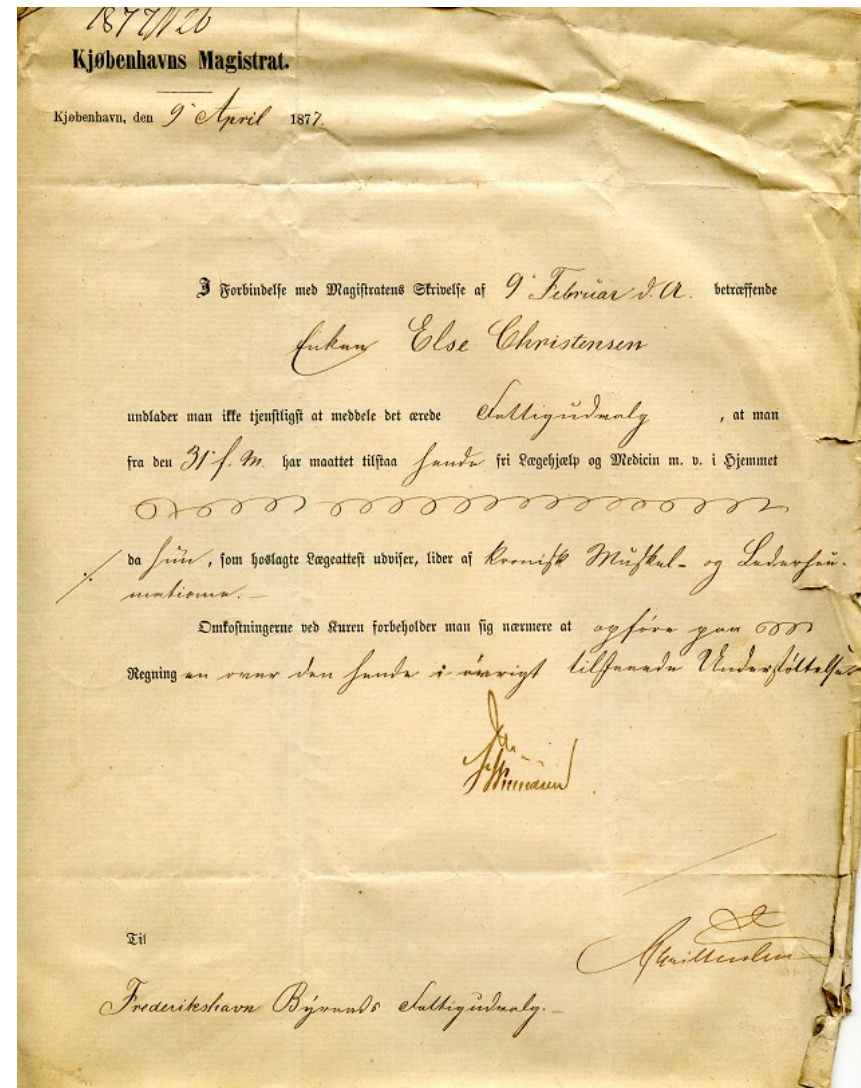 1877/126
Kjøbenhavns Magistrat.
Kjøbenhavn, den 9' April 1877.
I Forbindelse med Magistratens Skrivelse af 9' Februar d. A. betræffende
Enken Else Christensen
undlader man ikke tjenstligst at meddele det ærede Fattigudvalg , at man
fra den 31' f. M. har maattet tilstaa hende fri Lægehjælp og Medicin m. v. i Hjemmet
da hun, som hoslagte Lægeattest udviser, lider af kronisk Muskel- og Lederheu-
matisme.
Omkostningerne ved Kuren forbeholder man sig nærmere at opføre paa
Regning en over den hende i øvrigt tilstaaede Understøttelse
Til
Frederikshavn Byraads Fattigudvalg.